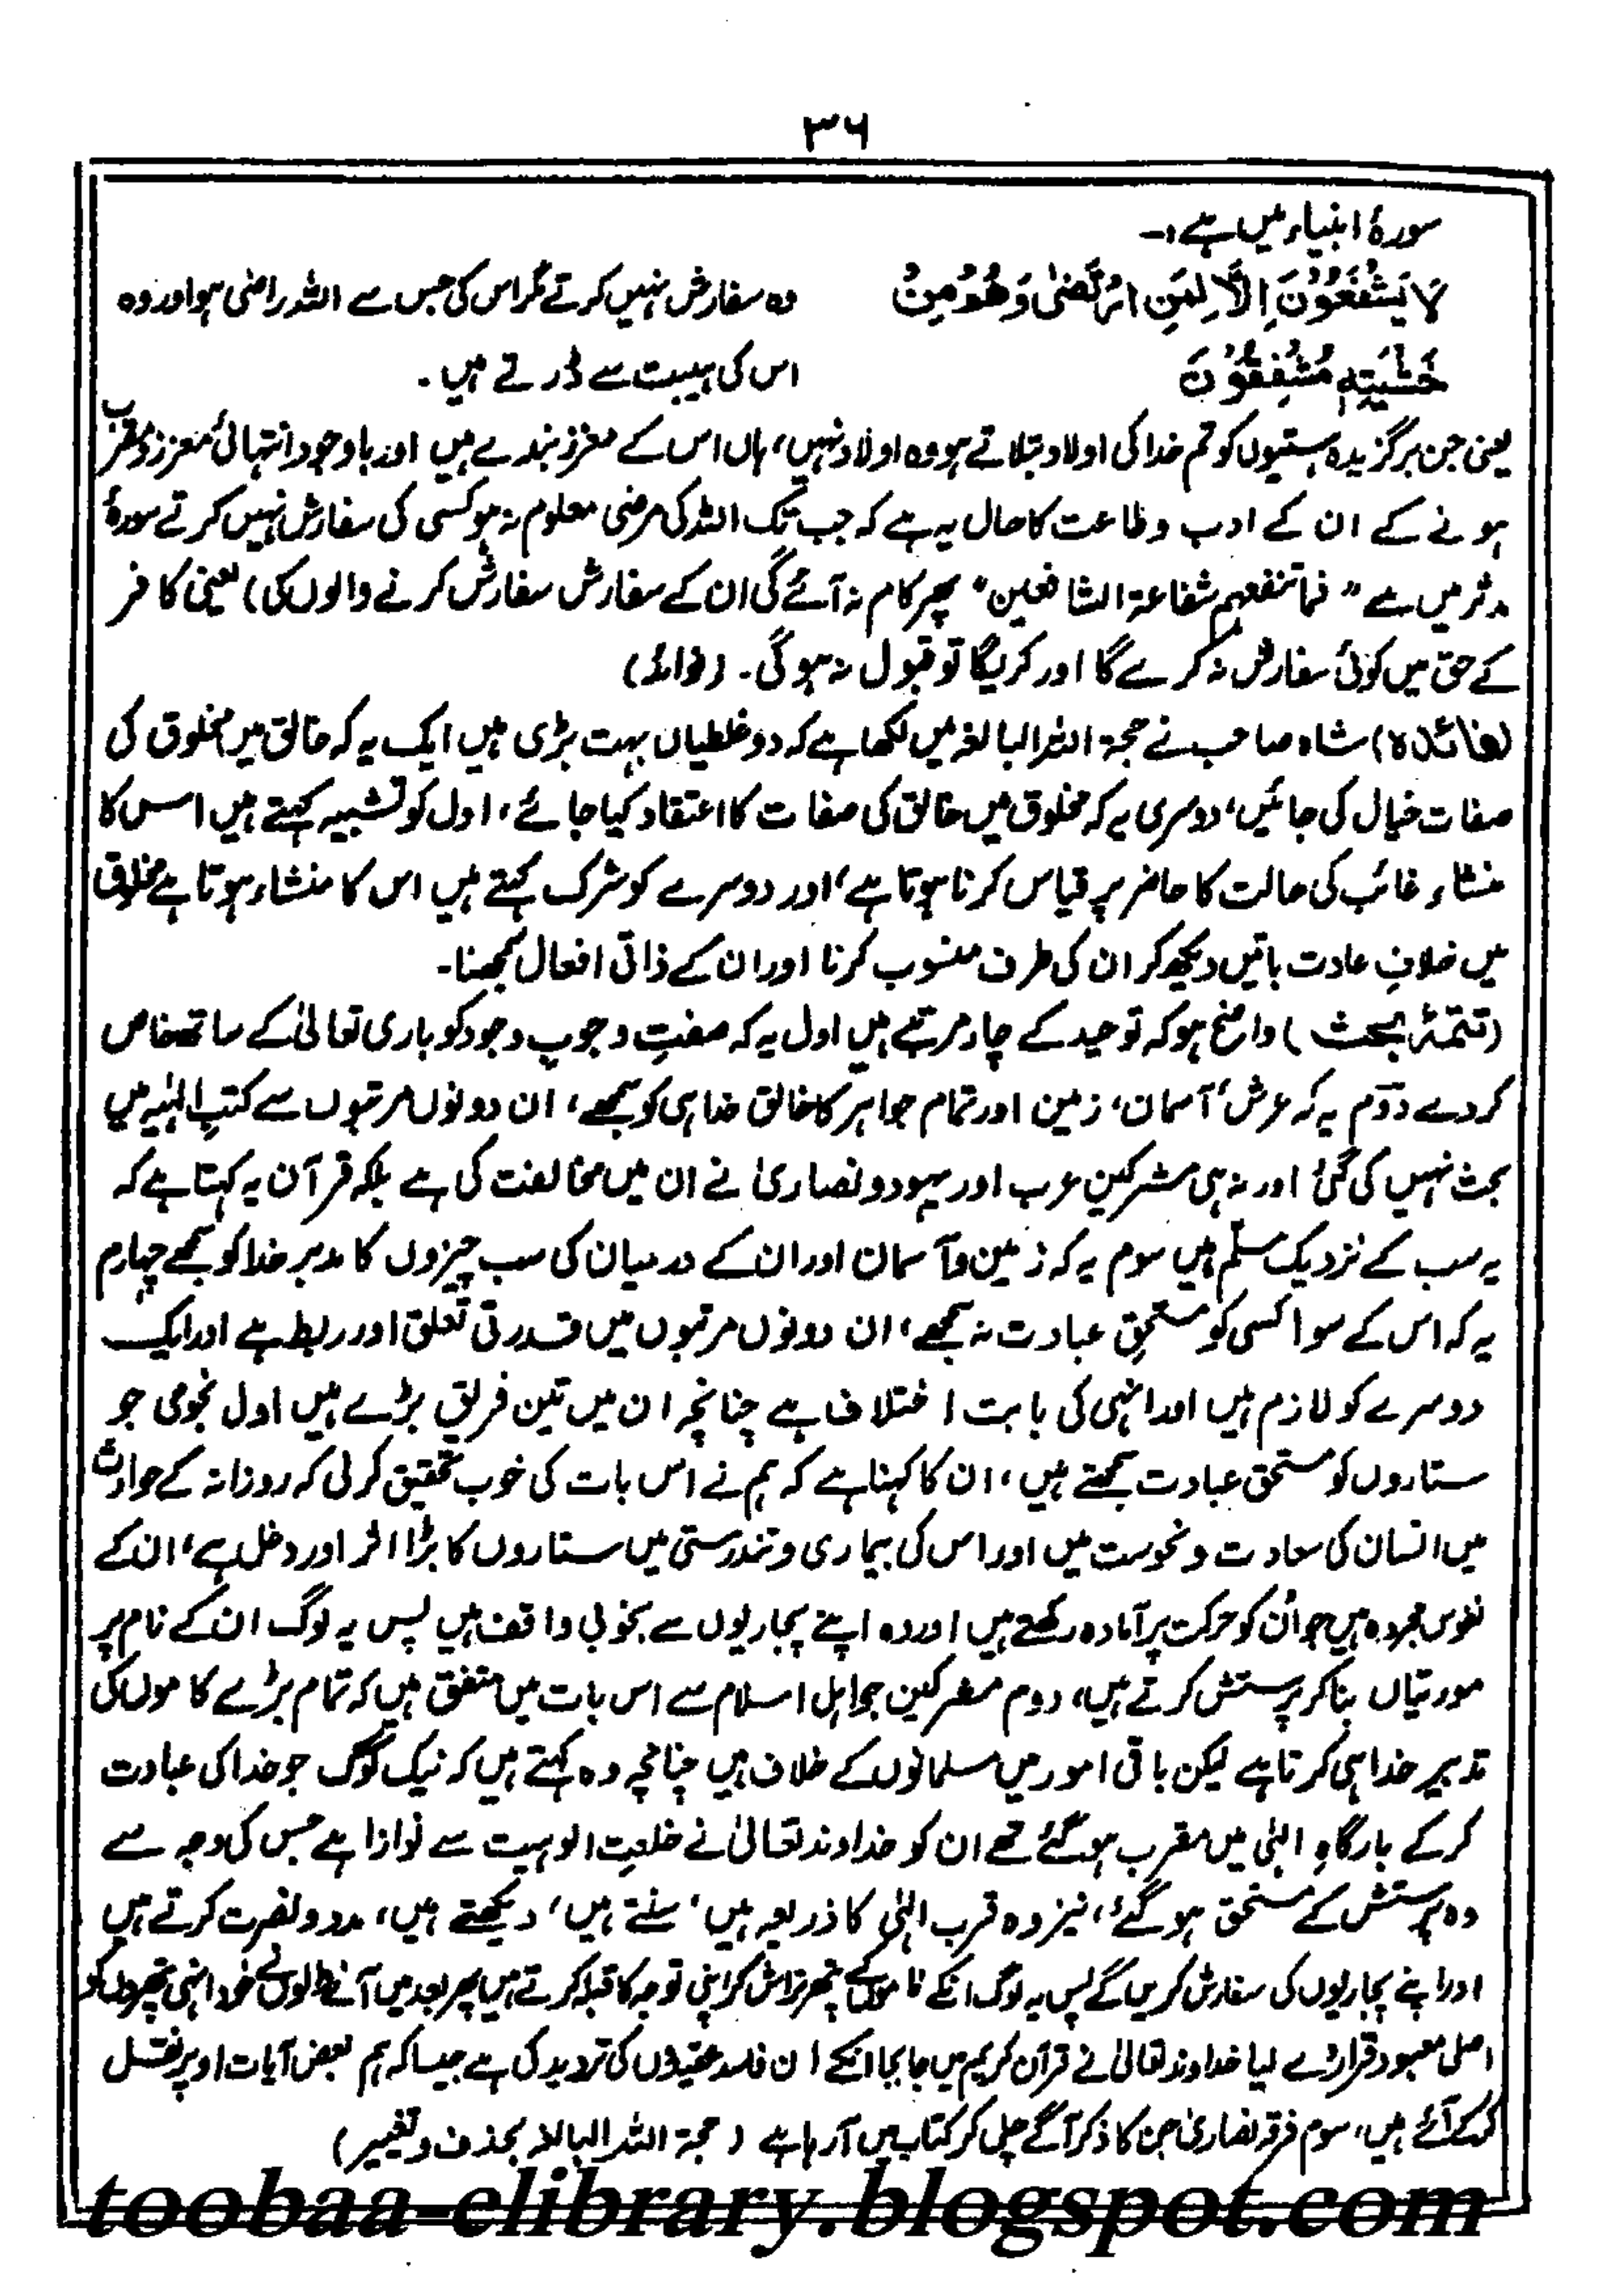 ۳۶
سورۂ انبیاء میں ہے:-
لَا يَشْفَعُوْنَ اِلَّا لِمَنِ ارْتَضٰى وَهُمْ مِنْ وہ سفارش نہیں کرتے مگر اس کی جس سے اللہ راضی ہو اور وہ
خَشْيَتِهٖ مُشْفِقُوْنَ اس کی ہیبت سے ڈرتے ہیں۔
یعنی جن برگزیدہ ہستیوں کو تم خدا کی اولاد بتلاتے ہو وہ اولاد نہیں، ہاں اس کے معزز بندے ہیں اور باوجود انتہائی معزز و مقرب
ہونے کے ان کے ادب و طاعت کا حال یہ ہے کہ جب تک اللہ کی مرضی معلوم نہ ہو کسی کی سفارش نہیں کرتے سورۂ
مدثر میں ہے "فما تنفعہم شفاعۃ الشافعین" پھر کام نہ آئے گی ان کے سفارش سفارش کرنے والوں کی) یعنی کافر
کے حق میں کوئی سفارش نہ کرے گا اور کریگا تو قبول نہ ہوگی۔ (فوائد)
(فائدہ) شاہ صاحب نے حجۃ اللہ البالغہ میں لکھا ہے کہ دو غلطیاں بہت بڑی ہیں ایک یہ کہ خالق میں مخلوق کی
صفات خیال کی جائیں، دوسری یہ کہ مخلوق میں خالق کی صفات کا اعتقاد کیا جائے، اول کو تشبیہ کہتے ہیں اس کا
منشاء غائب کی حالت کا حاضر پر قیاس کرنا ہوتا ہے، اور دوسرے کو شرک کہتے ہیں اس کا منشاء ہوتا ہے مخلوق
میں خلافِ عادت باتیں دیکھ کر ان کی طرف منسوب کرنا اور ان کے ذاتی افعال سمجھنا۔
(تتمۂ بحث) واضح ہو کہ توحید کے چار مرتبے ہیں اول یہ کہ صفتِ وجوبِ وجود کو باری تعالیٰ کے ساتھ خاص
کردے دوّم یہ کہ عرش، آسمان، زمین اور تمام جواہر کا خالق خدا ہی کو سمجھے، ان دونوں مرتبوں سے کتبِ الٰہیہ میں
بحث نہیں کی گئی اور نہ ہی مشرکینِ عرب اور یہود و نصاریٰ نے ان میں مخالفت کی ہے بلکہ قرآن یہ کہتا ہے کہ
یہ سب کے نزدیک مسلّم ہیں سوم یہ کہ زمین و آسمان اور ان کے درمیان کی سب چیزوں کا مدبر خدا کو سمجھے چہارم
یہ کہ اس کے سوا کسی کو مستحقِ عبادت نہ سمجھے، ان دونوں مرتبوں میں قدرتی تعلق اور ربط ہے اور ایک
دوسرے کو لازم ہیں اور انہی کی بابت اختلاف ہے چنانچہ ان میں تین فریق بڑے ہیں اول نجومی جو
ستاروں کو مستحق عبادت سمجھتے ہیں، ان کا کہنا ہے کہ ہم نے اس بات کی خوب تحقیق کرلی کہ روزانہ کے حوادث
میں انسان کی سعادت و نحوست میں اور اس کی بیماری و تندرستی میں ستاروں کا بڑا اثر اور دخل ہے، ان کے
نفوس مجردہ ہیں جو اُن کو حرکت پر آمادہ رکھتے ہیں اور وہ اپنے پجاریوں سے بخوبی واقف ہیں پس یہ لوگ ان کے نام پر
مورتیاں بناکر پرستش کرتے ہیں، دوم مشرکین جو اہل اسلام سے اس بات میں متفق ہیں کہ تمام بڑے کاموں کی
تدبیر خدا ہی کرتا ہے لیکن باقی امور میں مسلمانوں کے خلاف ہیں چنانچہ وہ کہتے ہیں کہ نیک لوگ جو خدا کی عبادت
کرکے بارگاہِ الٰہی میں مقرب ہوگئے تھے ان کو خداوند تعالیٰ نے خلعتِ الوہیت سے نوازا ہے جس کی وجہ سے
وہ پرستش کے مستحق ہوگئے، نیز وہ قرب الٰہی کا ذریعہ ہیں، سنتے ہیں، دیکھتے ہیں، مدد و نصرت کرتے ہیں
اور اپنے پجاریوں کی سفارش کریں گے پس یہ لوگ انکے ناموں کے پتھر تراش کر اپنی توجہ کا قبلہ کرتے ہیں پھر بعد میں آنے والوں نے خود انہی پتھروں کو
اصلی معبود قرار دے لیا خداوند تعالیٰ نے قرآن کریم میں جا بجا انکے ان فاسد عقیدوں کی تردید کی ہے جیسا کہ ہم بعض آیات اوپر نقل
کرکے آئے ہیں، سوم فرقہ نصاریٰ جن کا ذکر آگے چل کر کتاب میں آرہا ہے (حجۃ اللہ البالغہ بحذف و تغییر)
toobaa-elibrary.blogspot.com